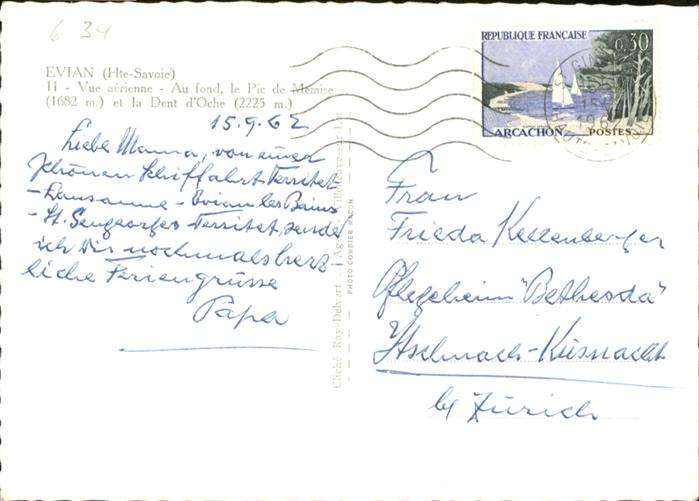 6 34
EVIAN (Hte-Savoie)
11 - Vue aérienne - Au fond, le Pic de Mémise
(1682 m.) et la Dent d'Oche (2225 m.)
15.9.62
Liebe Mamma, von einer
schönen Schiffahrt Territet
- Lausanne - Evian les Bains
- St. Gingolph - Territet, sende
ich Dir nochmals herz-
liche Feriengrüsse
Papa
Cliché Ray-Delvert
PHOTO COMBIER MACON
REPUBLIQUE FRANÇAISE
0,30
ARCACHON
POSTES
Frau
Frieda Kellenberger
Pflegeheim "Bethesda"
Itschnach-Küsnacht
b/ Zürich